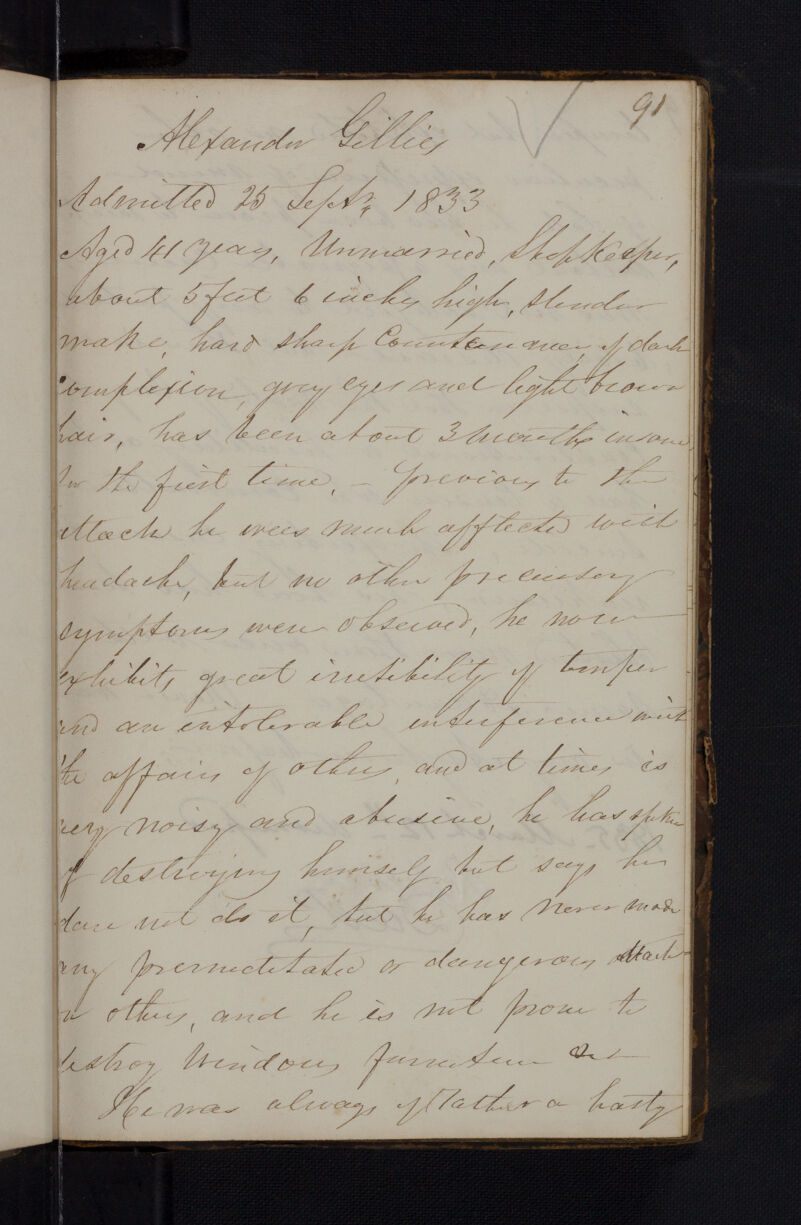 91
Alexander Gillies
Admitted 25 Septr. 1833
Aged 41 years, Unmarried, Shopkeeper,
about 5 feet 6 inches high, slender
make, hard sharp Countenance, of dark
complexion, grey eyes and light brown
hair, has been about 3 months insane
for the first time, – previous to the
attack he was much affected with
headache, but no other precursory
symptoms were observed, he now
exhibits great irritibility of temper
and an intolerable interference with
the affairs of others, and at times is
very noisy and abusive, he has spoken
of destroying himself but says he
dare not do it, but he has never made
any premeditated or dangerous attack
on others, and he is not prone to
destroy Windows furniture &c
He was always of rather a hasty